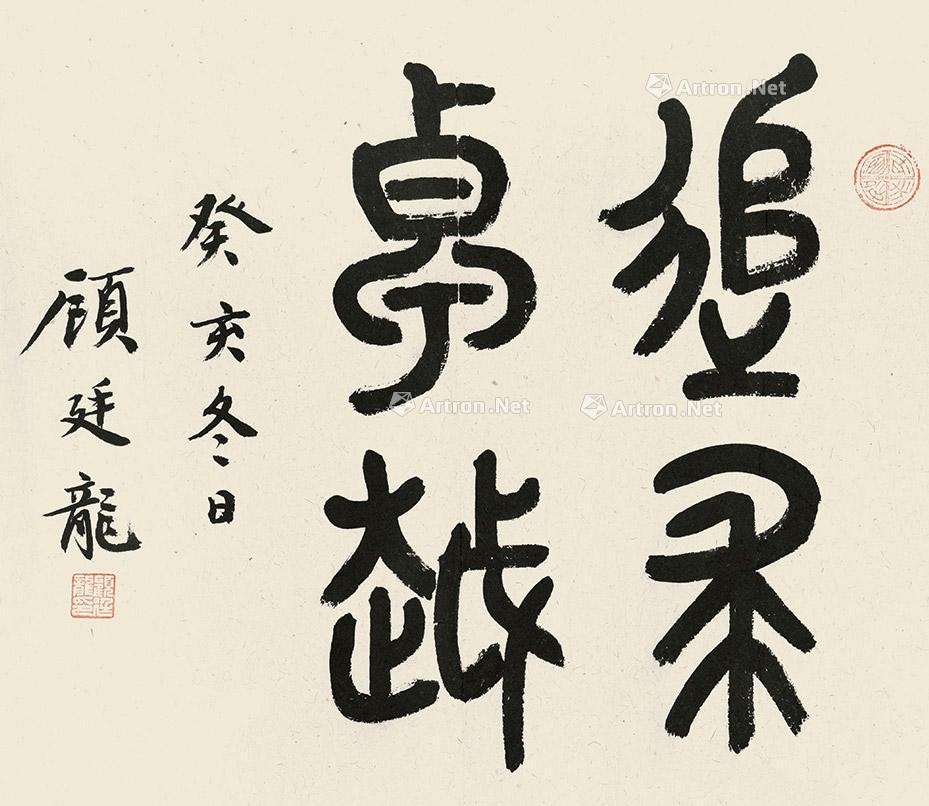 追求
卓越
癸亥冬日
顧廷龍
顧廷龍印
Artron.Net
Artron.Net
Artron.Net